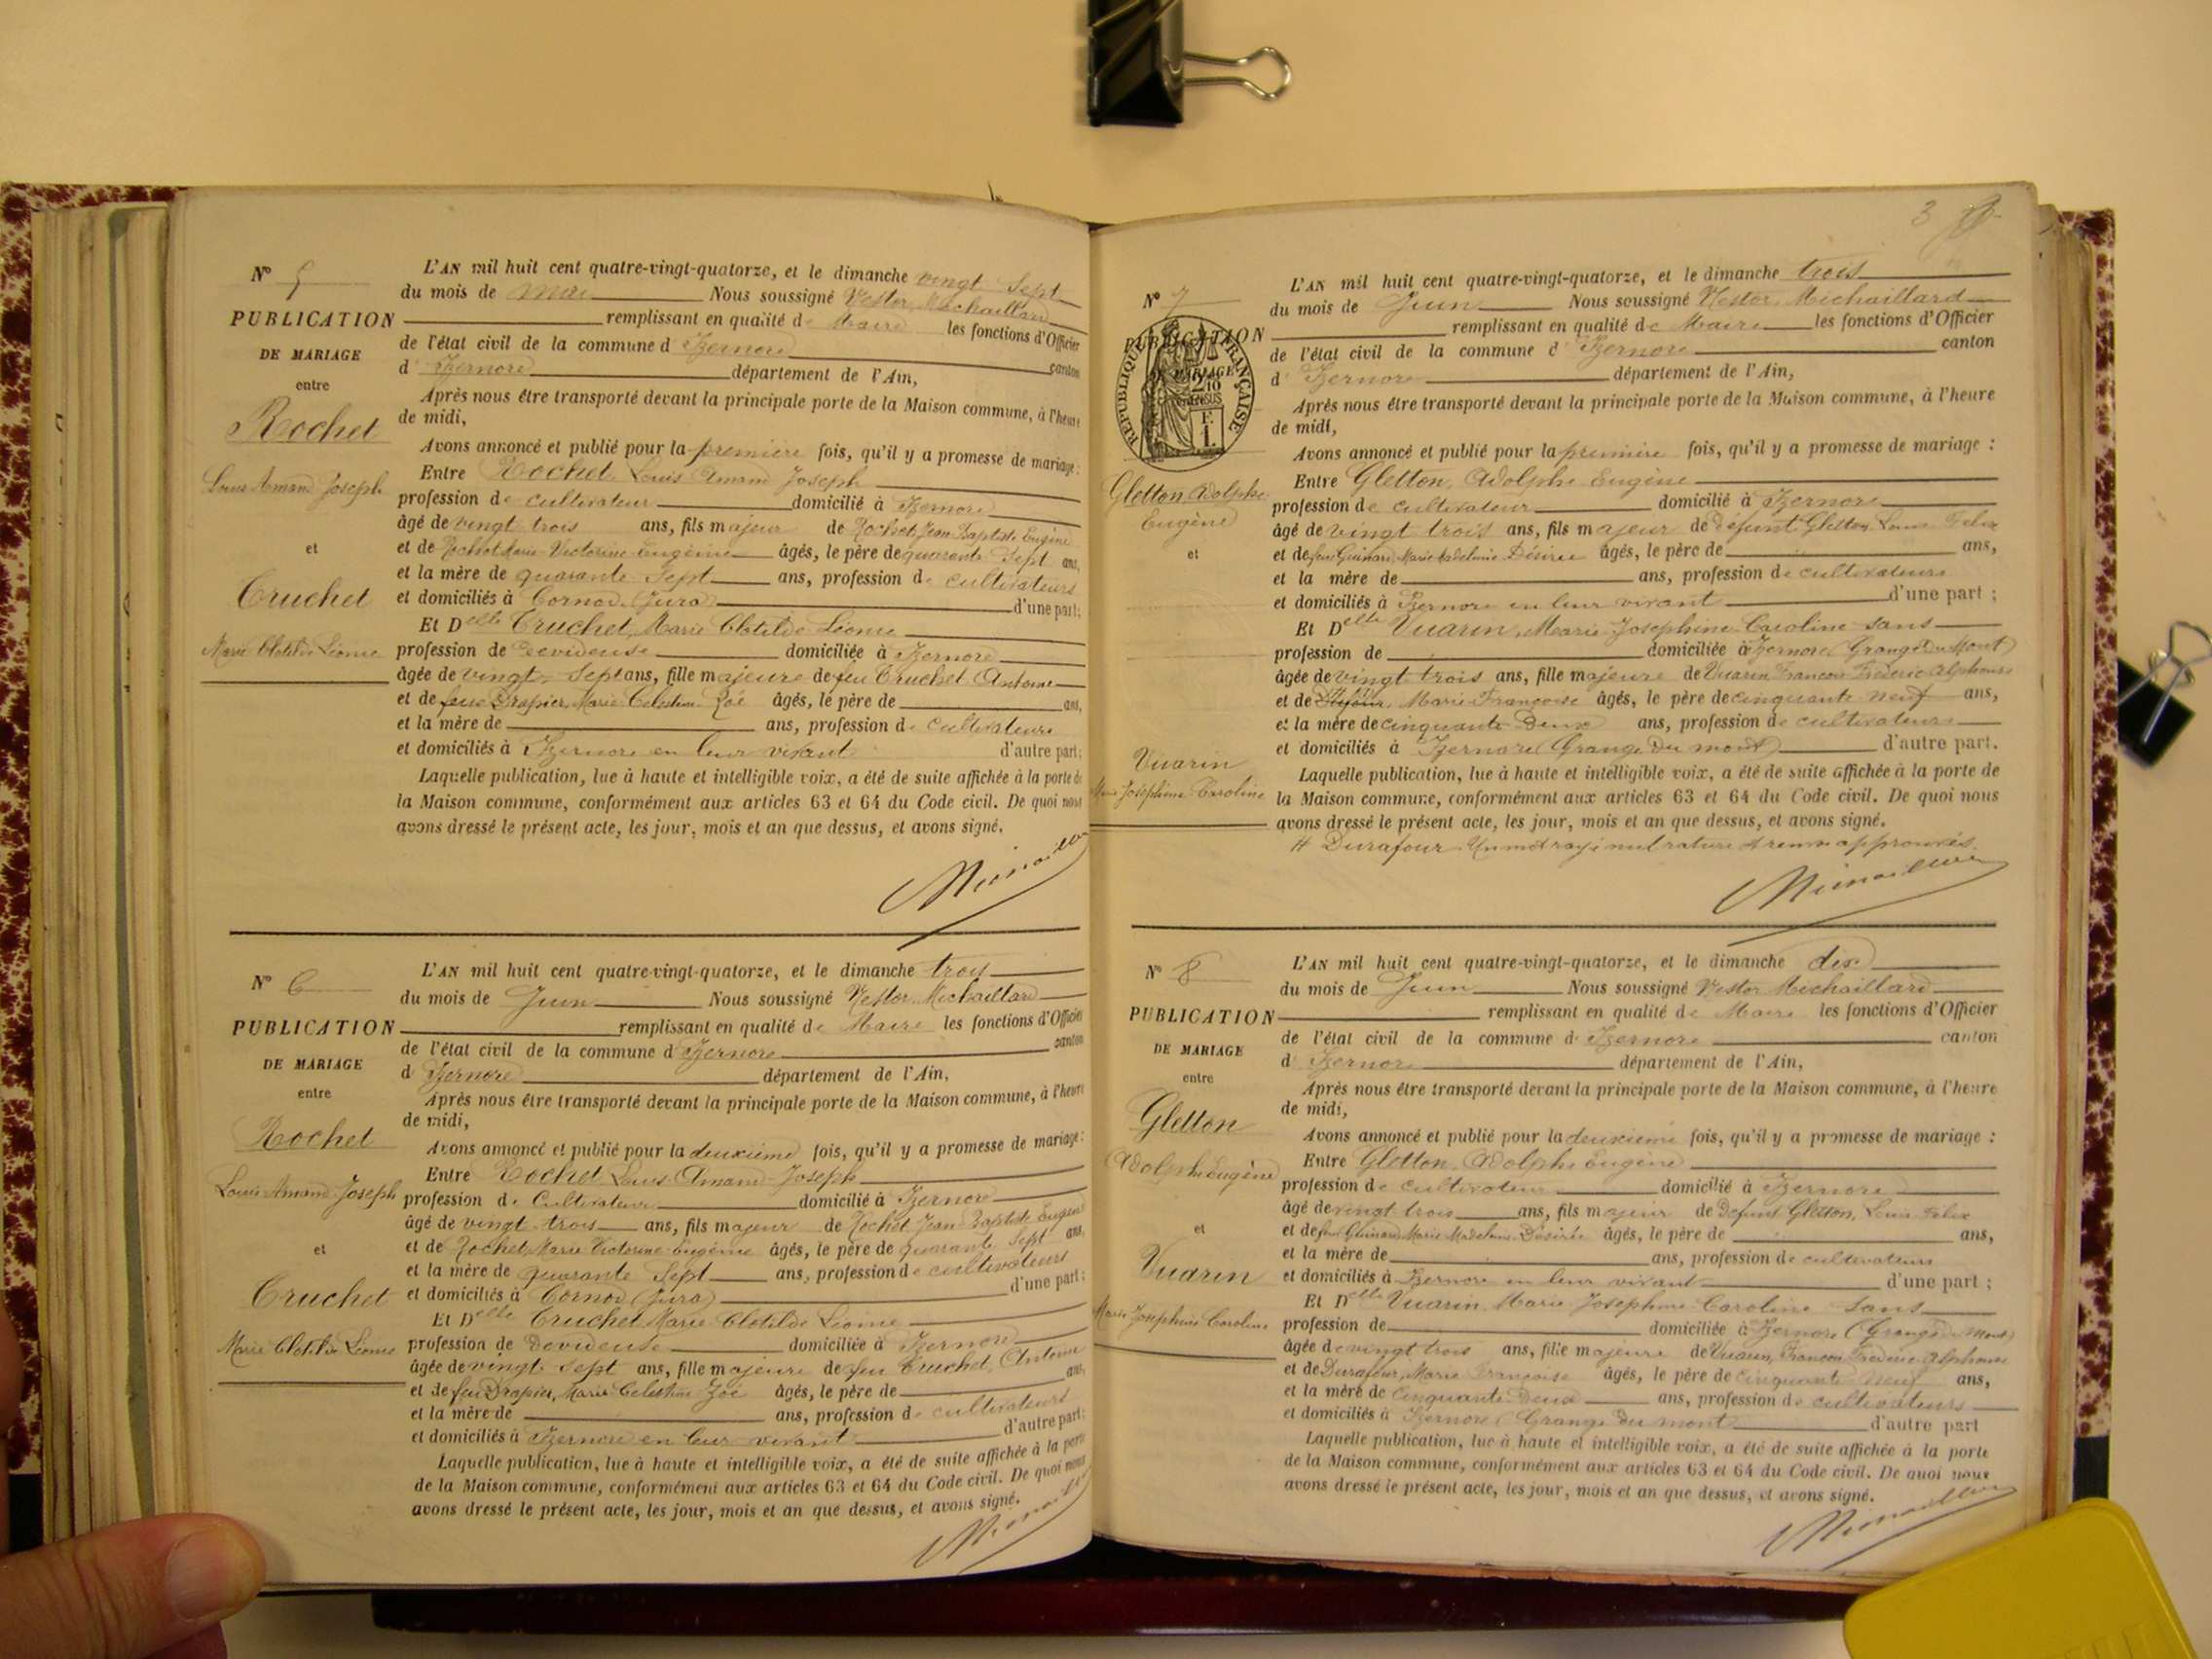 N° 5
PUBLICATION
DE MARIAGE
entre
Rochet
Louis Amand Joseph
et
Cruchet
Marie Clotilde Léonie
L'AN mil huit cent quatre-vingt-quatorze, et le dimanche vingt Sept
du mois de Mai Nous soussigné Nestor Michaillard
remplissant en qualité de Maire les fonctions d'Officier
de l'état civil de la commune d'Izernore canton
d'Izernore département de l'Ain,
Après nous être transporté devant la principale porte de la Maison commune, à l'heure
de midi,
Avons annoncé et publié pour la première fois, qu'il y a promesse de mariage :
Entre Rochet Louis Amand Joseph
profession de cultivateur domicilié à Izernore
âgé de vingt trois ans, fils majeur de Rochet Jean Baptiste Eugène
et de Rochet Victorine Eugénie âgés, le père de quarante Sept ans,
et la mère de quarante Sept ans, profession de cultivateurs
et domiciliés à Cornod (Jura) d'une part;
Et Delle Cruchet, Marie Clotilde Léonie
profession de Devideuse domiciliée à Izernore
âgée de vingt Sept ans, fille majeure de feu Cruchet Antoine
et de feue Drapier, Marie Celestine Zoé âgés, le père de ans,
et la mère de ans, profession de cultivateurs
et domiciliés à Izernore en leur vivant d'autre part;
Laquelle publication, lue à haute et intelligible voix, a été de suite affichée à la porte de
la Maison commune, conformément aux articles 63 et 64 du Code civil. De quoi nous
avons dressé le présent acte, les jour, mois et an que dessus, et avons signé.
N° 6
PUBLICATION
DE MARIAGE
entre
Rochet
Louis Amand Joseph
et
Cruchet
Marie Clotilde Léonie
L'AN mil huit cent quatre-vingt-quatorze, et le dimanche trois
du mois de Juin Nous soussigné Nestor Michaillard
remplissant en qualité de Maire les fonctions d'Officier
de l'état civil de la commune d'Izernore canton
d'Izernore département de l'Ain,
Après nous être transporté devant la principale porte de la Maison commune, à l'heure
de midi,
Avons annoncé et publié pour la deuxième fois, qu'il y a promesse de mariage :
Entre Rochet Louis Amand Joseph
profession de Cultivateur domicilié à Izernore
âgé de vingt trois ans, fils majeur de Rochet Jean Baptiste Eugène
et de Rochet Marie Victorine Eugénie âgés, le père de quarante Sept ans,
et la mère de quarante Sept ans, profession de cultivateurs
et domiciliés à Cornod (Jura) d'une part ;
Et Delle Cruchet Marie Clotilde Léonie
profession de Devideuse domiciliée à Izernore
âgée de vingt Sept ans, fille majeure de feu Cruchet, Antoine
et de feu Drapier, Marie Celestine Zoé âgés, le père de ans,
et la mère de ans, profession de cultivateurs
et domiciliés à Izernore en leur vivant d'autre part:
Laquelle publication, lue à haute et intelligible voix, a été de suite affichée à la porte
de la Maison commune, conformément aux articles 63 et 64 du Code civil. De quoi nous
avons dressé le présent acte, les jour, mois et an que dessus, et avons signé.
3
N° 7
PUBLICATION
DE MARIAGE
RÉPUBLIQUE FRANÇAISE
Gletton Adolphe
Eugène
et
Vuarin
Marie Joséphine Caroline
L'AN mil huit cent quatre-vingt-quatorze, et le dimanche trois
du mois de Juin Nous soussigné Nestor Michaillard
remplissant en qualité de Maire les fonctions d'Officier
de l'état civil de la commune d'Izernore canton
d'Izernore département de l'Ain,
Après nous être transporté devant la principale porte de la Maison commune, à l'heure
de midi,
Avons annoncé et publié pour la première fois, qu'il y a promesse de mariage :
Entre Gletton, Adolphe Eugène
profession de cultivateur domicilié à Izernore
âgé de vingt trois ans, fils majeur de défunt Gletton, Louis Felix
et de feue Guinard, Marie Madeleine Désirée âgés, le père de ans,
et la mère de ans, profession de cultivateurs
et domiciliés à Izernore en leur vivant d'une part ;
Et Delle Vuarin, Marie Joséphine Caroline sans
profession de domiciliée à Izernore (Grange du Mont)
âgée de vingt trois ans, fille majeure de Vuarin François Frédéric Alphonse
et de Marie Françoise âgés, le père de cinquante neuf ans,
et la mère de cinquante Deux ans, profession de cultivateurs
et domiciliés à Izernore (Grange du mont) d'autre part.
Laquelle publication, lue à haute et intelligible voix, a été de suite affichée à la porte de
la Maison commune, conformément aux articles 63 et 64 du Code civil. De quoi nous
avons dressé le présent acte, les jour, mois et an que dessus, et avons signé.
# Durafour Un mot rayé nul rature et renvoi approuvés.
N° 8
PUBLICATION
DE MARIAGE
entre
Gletton
Adolphe Eugène
et
Vuarin
Marie Joséphine Caroline
L'AN mil huit cent quatre-vingt-quatorze, et le dimanche dix
du mois de Juin Nous soussigné Nestor Michaillard
remplissant en qualité de Maire les fonctions d'Officier
de l'état civil de la commune d'Izernore canton
d'Izernore département de l'Ain,
Après nous être transporté devant la principale porte de la Maison commune, à l'heure
de midi,
Avons annoncé et publié pour la deuxième fois, qu'il y a promesse de mariage :
Entre Gletton, Adolphe Eugène
profession de cultivateur domicilié à Izernore
âgé de vingt trois ans, fils majeur de Défunt Gletton, Louis Felix
et de feu Guinard Marie Madeleine Désirée âgés, le père de ans,
et la mère de ans, profession de cultivateurs
et domiciliés à Izernore en leur vivant d'une part ;
Et Delle Vuarin, Marie Joséphine Caroline Sans
profession de domiciliée à Izernore (Grange du Mont)
âgée de vingt trois ans, fille majeure de Vuarin, François Frédéric Alphonse
et de Durafour, Marie Françoise âgés, le père de cinquante neuf ans,
et la mère de Cinquante Deux ans, profession de cultivateurs
et domiciliés à Izernore (Grange du mont d'autre part
Laquelle publication, lue à haute et intelligible voix, a été de suite affichée à la porte
de la Maison commune, conformément aux articles 63 et 64 du Code civil. De quoi nous
avons dressé le présent acte, les jour, mois et an que dessus, et avons signé.